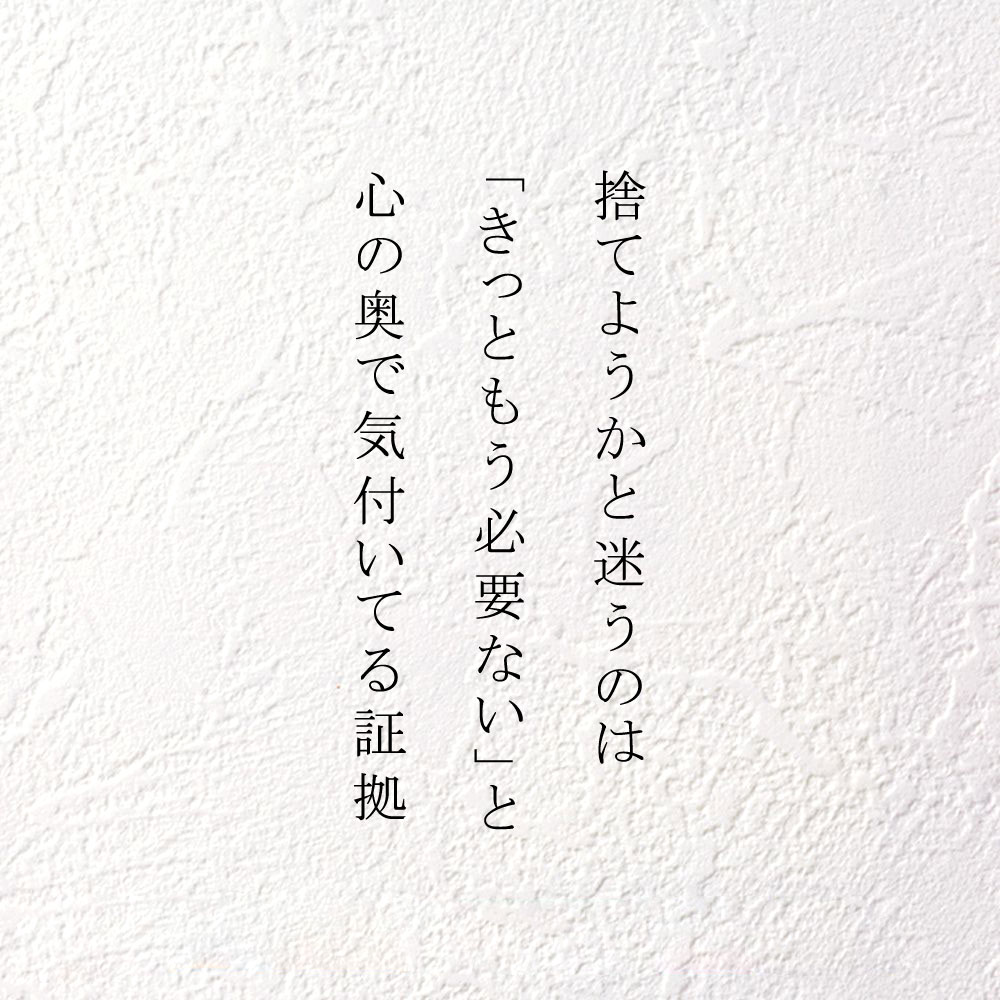 捨てようかと迷うのは
「きっともう必要ない」と
心の奥で気付いてる証拠